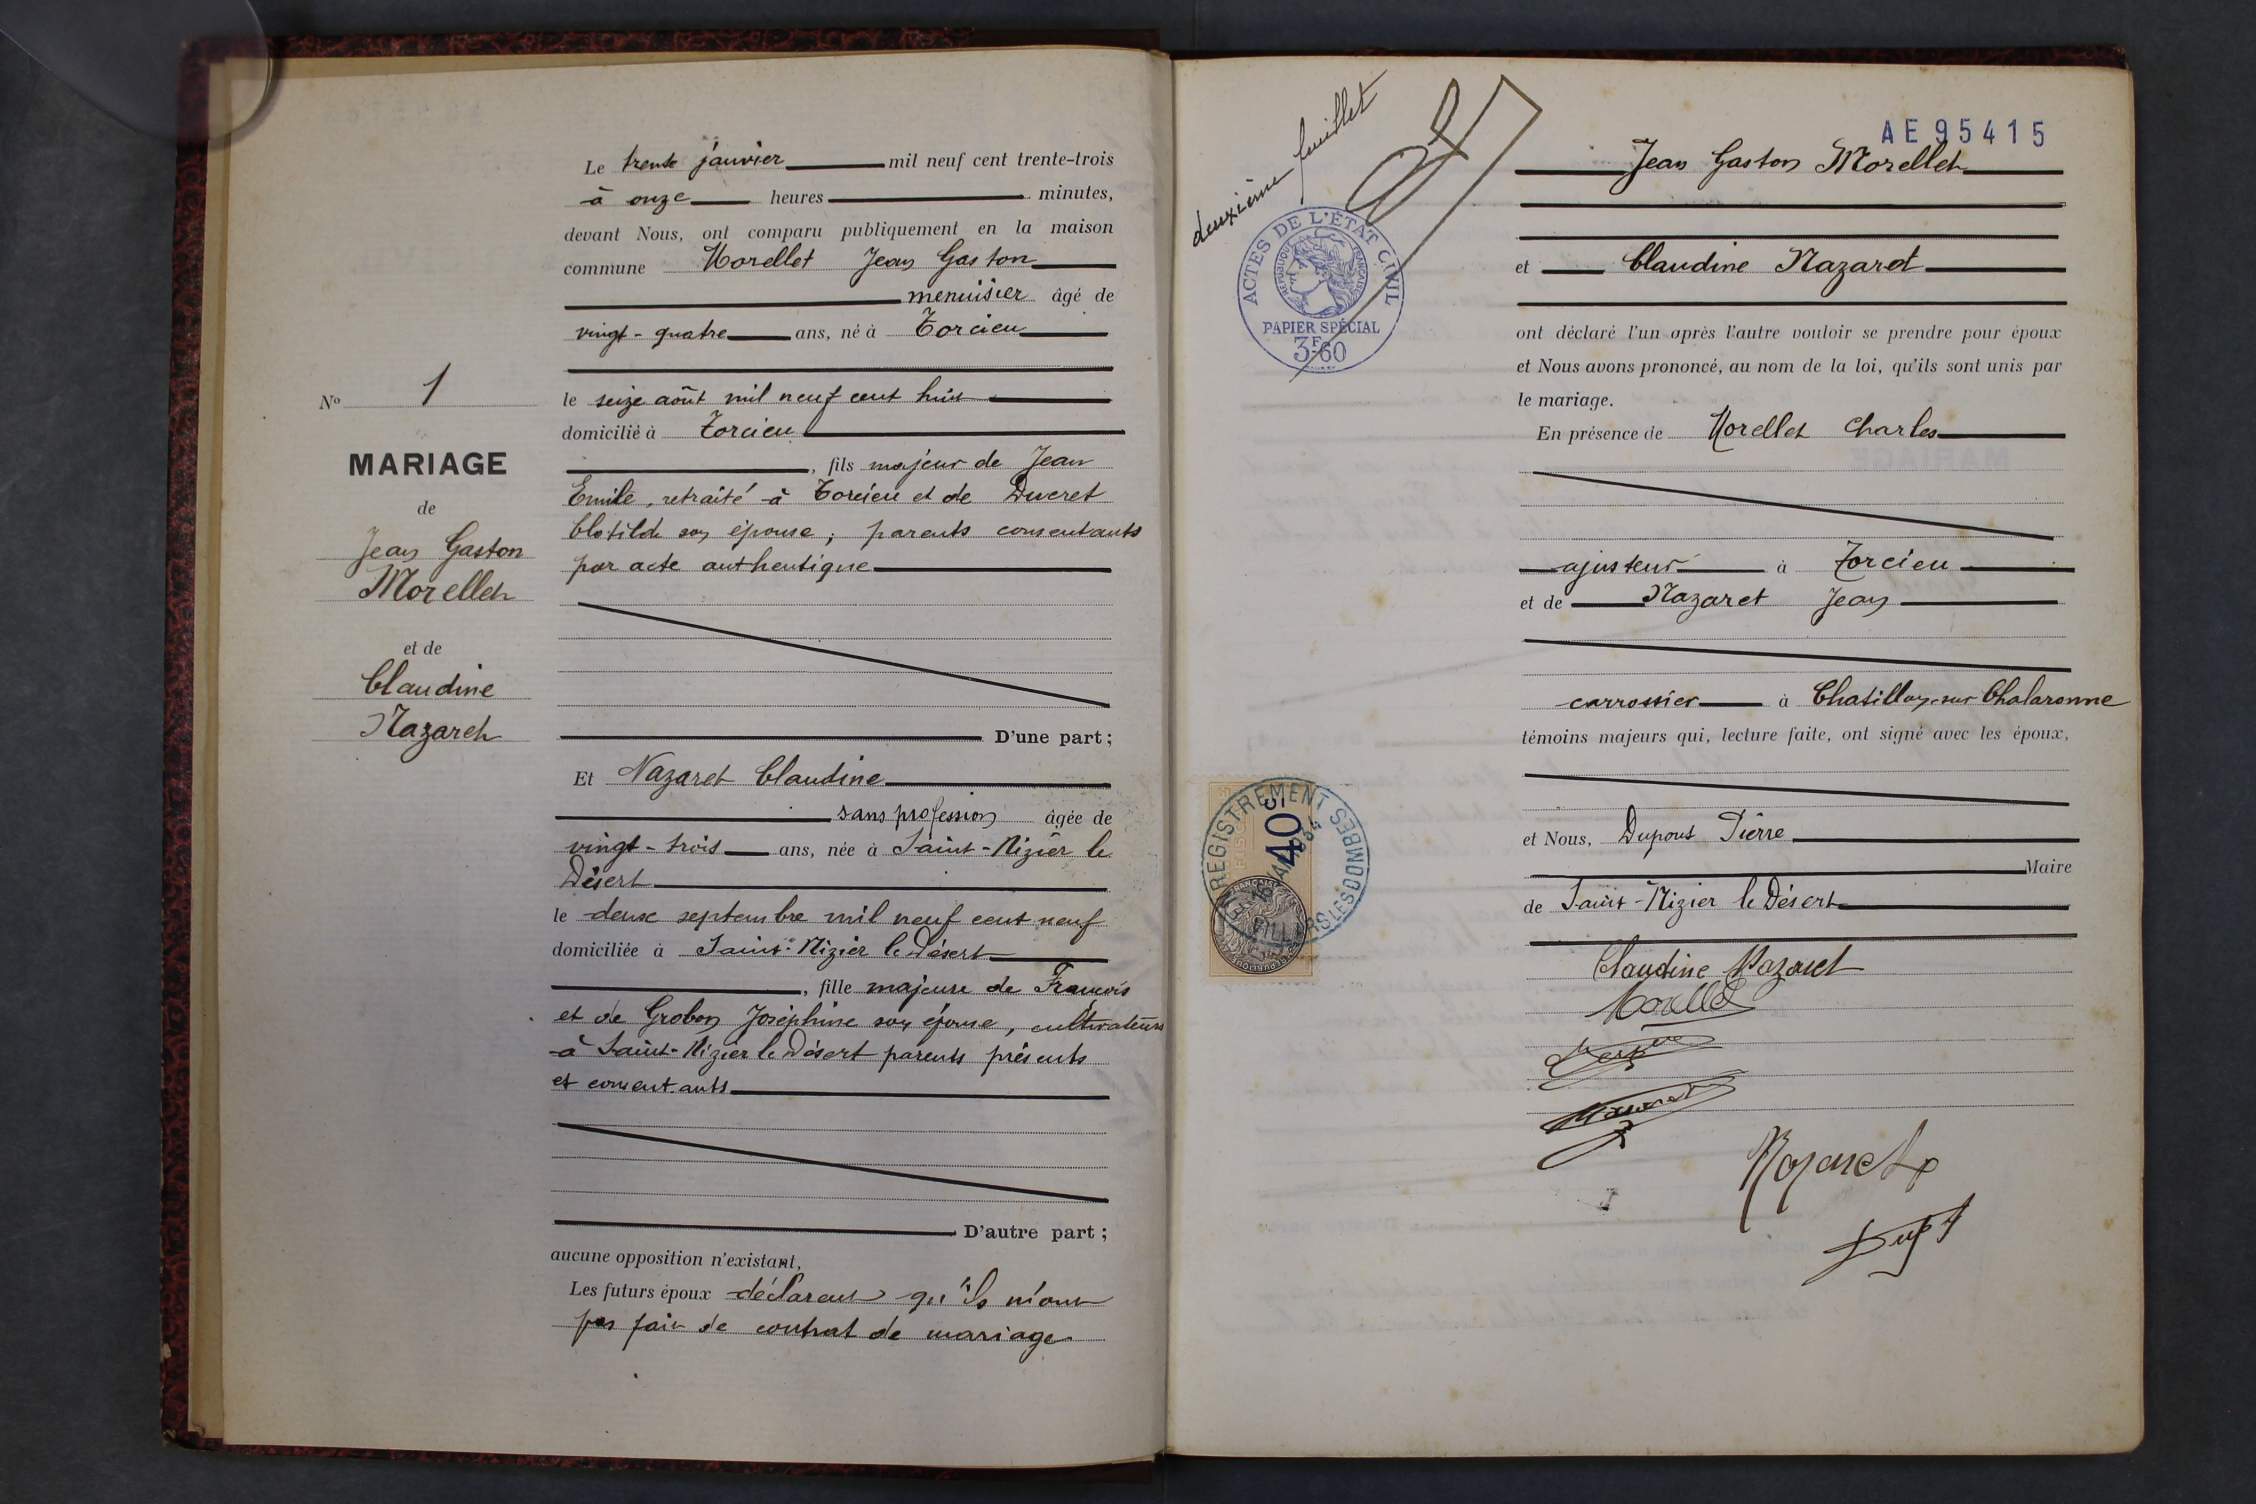 N° 1
MARIAGE
de
Jean Gaston
Morellet
et de
Claudine
Nazaret
Le trente janvier mil neuf cent trente-trois
à onze heures minutes,
devant Nous, ont comparu publiquement en la maison
commune Morellet Jean Gaston
menuisier âgé de
vingt-quatre ans, né à Torcieu
le seize août mil neuf cent huit
domicilié à Torcieu
, fils majeur de Jean
Emile, retraité à Torcieu et de Ducret
Clotilde son épouse ; parents consentants
par acte authentique
D'une part ;
Et Nazaret Claudine
sans profession âgée de
vingt-trois ans, née à Saint-Nizier le
Désert
le deux septembre mil neuf cent neuf
domiciliée à Saint-Nizier le Désert
, fille majeure de François
et de Grobon Joséphine son épouse, cultivateurs
à Saint-Nizier le Désert parents présents
et consentants
D'autre part ;
aucune opposition n'existant,
Les futurs époux déclarent qu'ils n'ont
pas fait de contrat de mariage
deuxième feuillet
ACTES DE L'ÉTAT CIVIL
RÉPUBLIQUE FRANÇAISE
PAPIER SPÉCIAL
3F.60
AE95415
Jean Gaston Morellet
et Claudine Nazaret
ont déclaré l'un après l'autre vouloir se prendre pour époux
et Nous avons prononcé, au nom de la loi, qu'ils sont unis par
le mariage.
En présence de Morellet Charles
ajusteur à Torcieu
et de Nazaret Jean
carrossier à Chatillon-sur Chalaronne
témoins majeurs qui, lecture faite, ont signé avec les époux,
et Nous, Dupont Pierre
Maire
de Saint-Nizier le Désert
ENREGISTREMENT
LES DOMBES
40c
Claudine Nazaret
Morellet
Nazaret
Nazaret